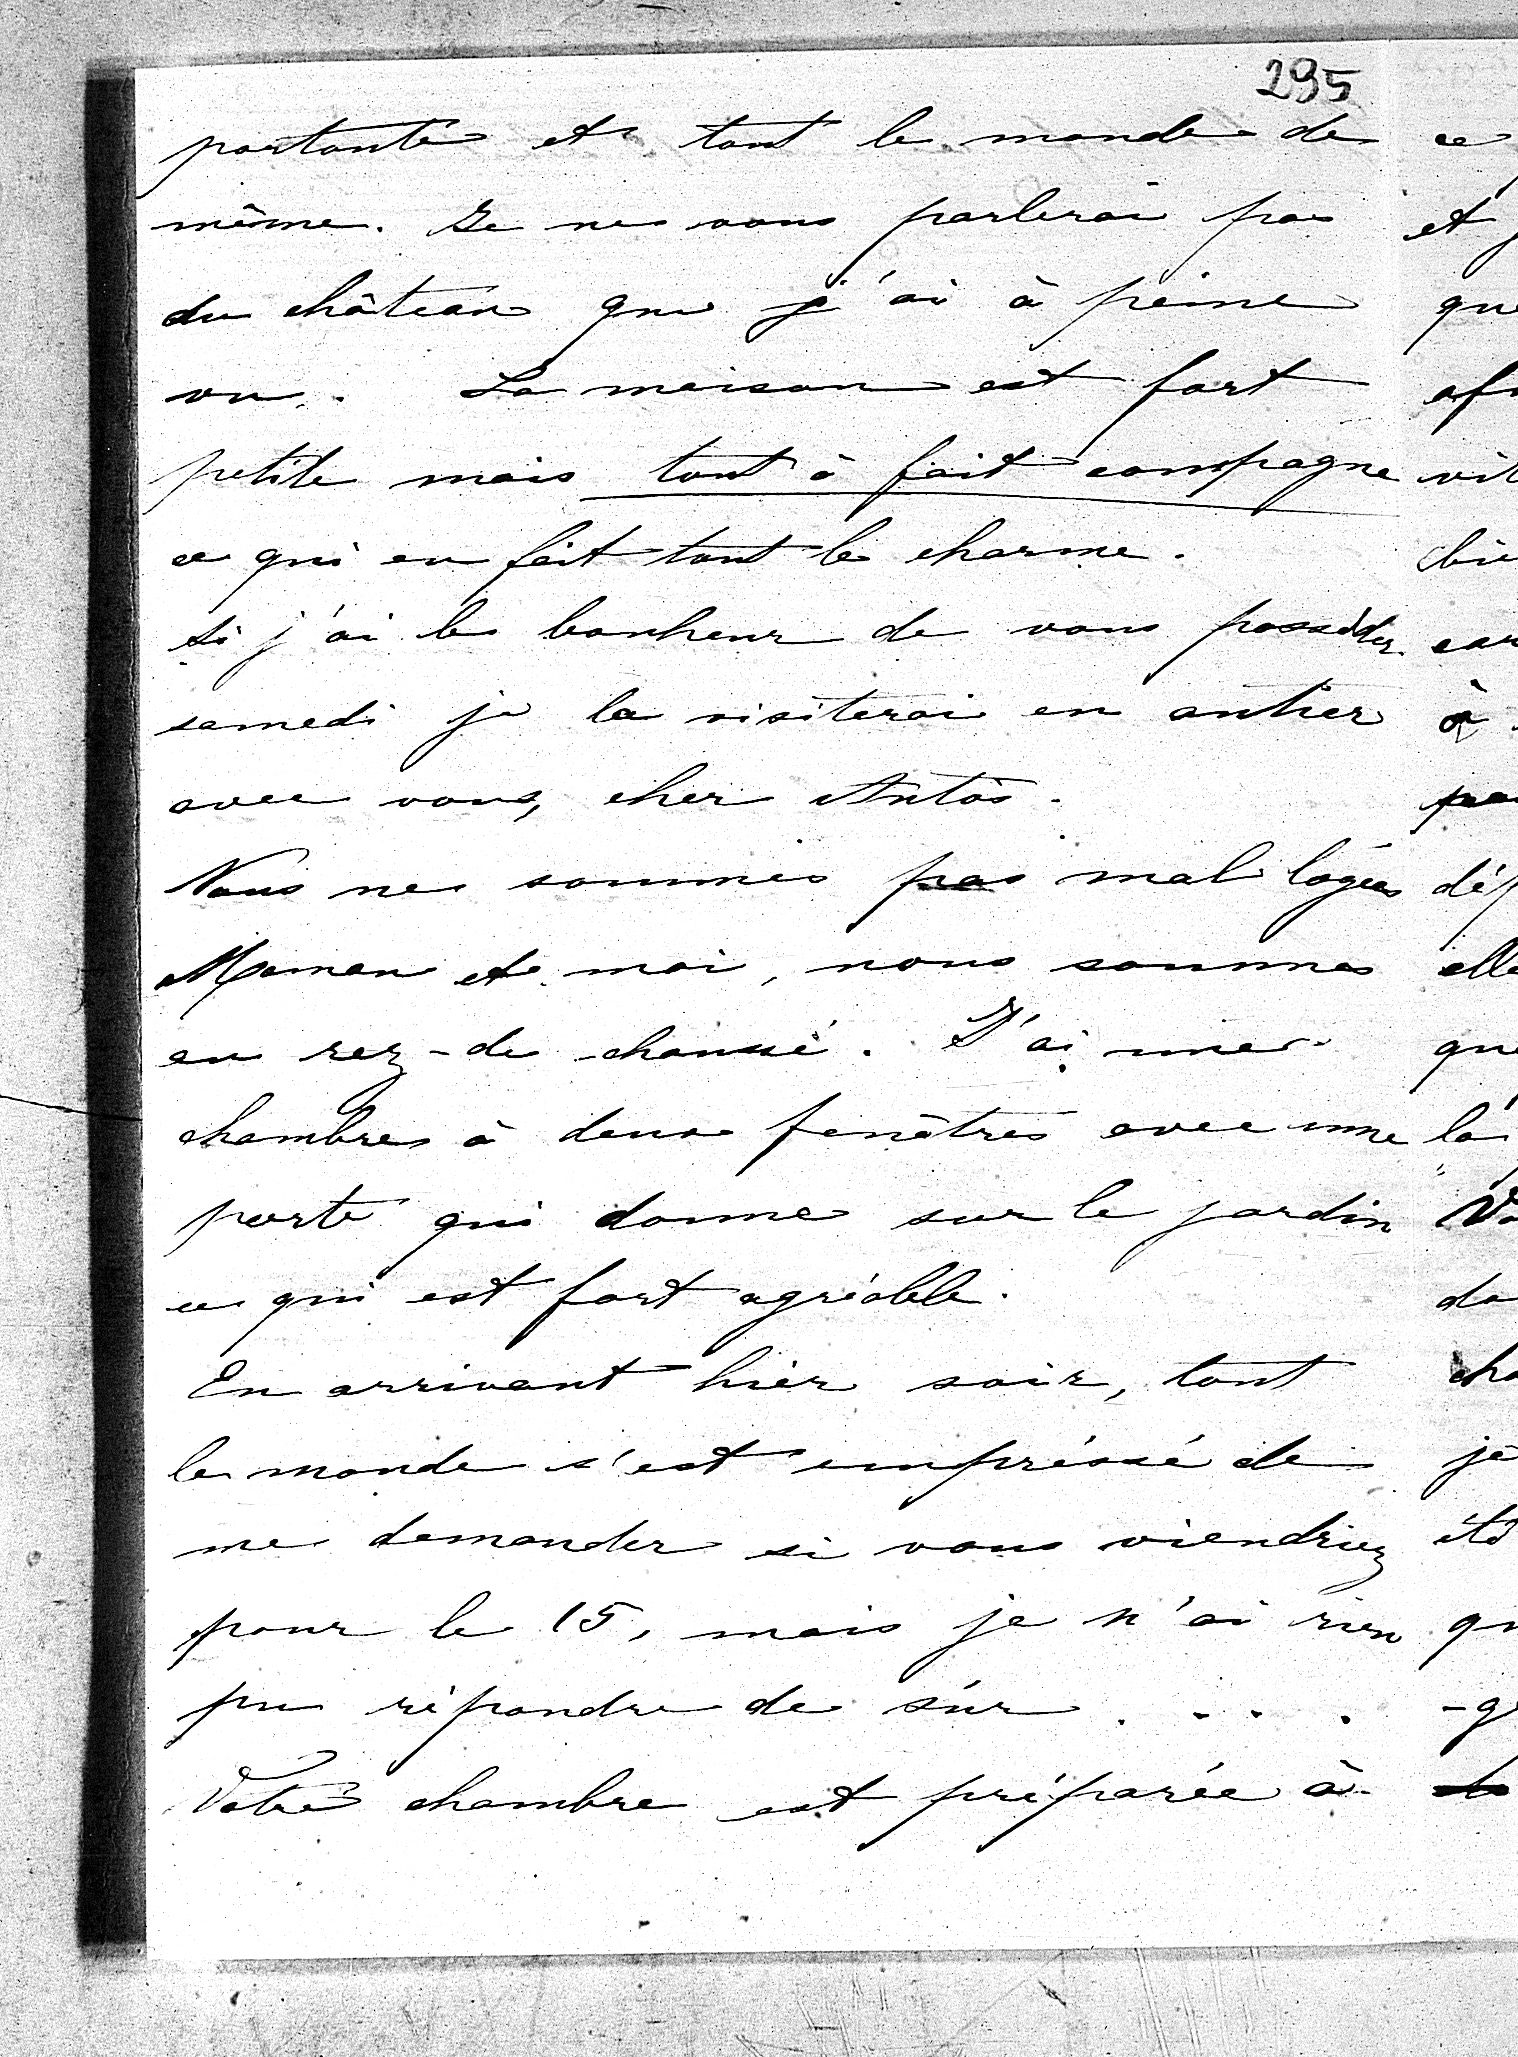 295
portante et tout le monde de
même. Je ne vous parlerai pas
du château que j'ai à peine
vu. La maison est fort
petite mais tout à fait campagne
ce qui en fait tout le charme.
Si j'ai le bonheur de vous posséder
samedi je la visiterai en entier
avec vous, cher Antós.
Nous ne sommes pas mal logées
Maman et moi, nous sommes
en rez-de chaussé. J'ai une
chambre à deux fenêtres avec une
porte qui donne sur le jardin
ce qui est fort agréable.
En arrivant hier soir, tout
le monde s'est empréssé de
me demander si vous viendriez
pour le 15, mais je n'ai rien
pu répondre de sûr . . . .
Votre chambre est préparée à
ce
et j
que
vit
car
à
dép
elle
que
là
Vo
da
cha
je
été
qu
-g